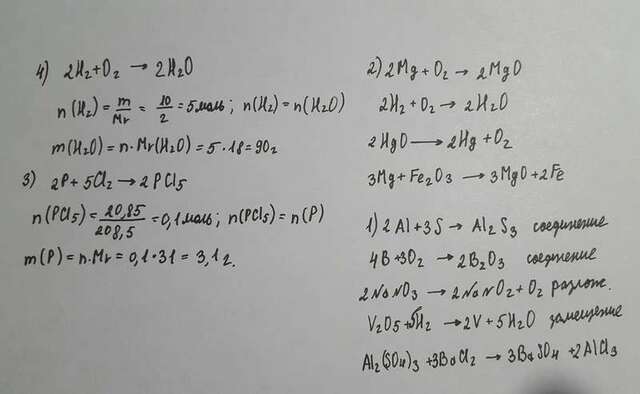 4) 2H₂+O₂ → 2H₂O
n(H₂) = m/Mr = 10/2 = 5моль; n(H₂) = n(H₂O)
m(H₂O) = n·Mr(H₂O) = 5·18=90г
3) 2P+5Cl₂→2PCl₅
n(PCl₅) = 20,85/208,5 = 0,1моль; n(PCl₅) = n(P)
m(P) = n·Mr = 0,1·31 = 3,1г.
2) 2Mg + O₂ → 2MgO
2H₂ + O₂ → 2H₂O
2HgO → 2Hg + O₂
3Mg + Fe₂O₃ → 3MgO+2Fe
1) 2Al+3S → Al₂S₃ соединение
4B+3O₂ → 2B₂O₃ соединение
2NaNO₃ → 2NaNO₂ + O₂ разлож.
V₂O₅+5H₂ → 2V + 5H₂O замещение
Al₂(SO₄)₃ +3BaCl₂ → 3BaSO₄ +2AlCl₃